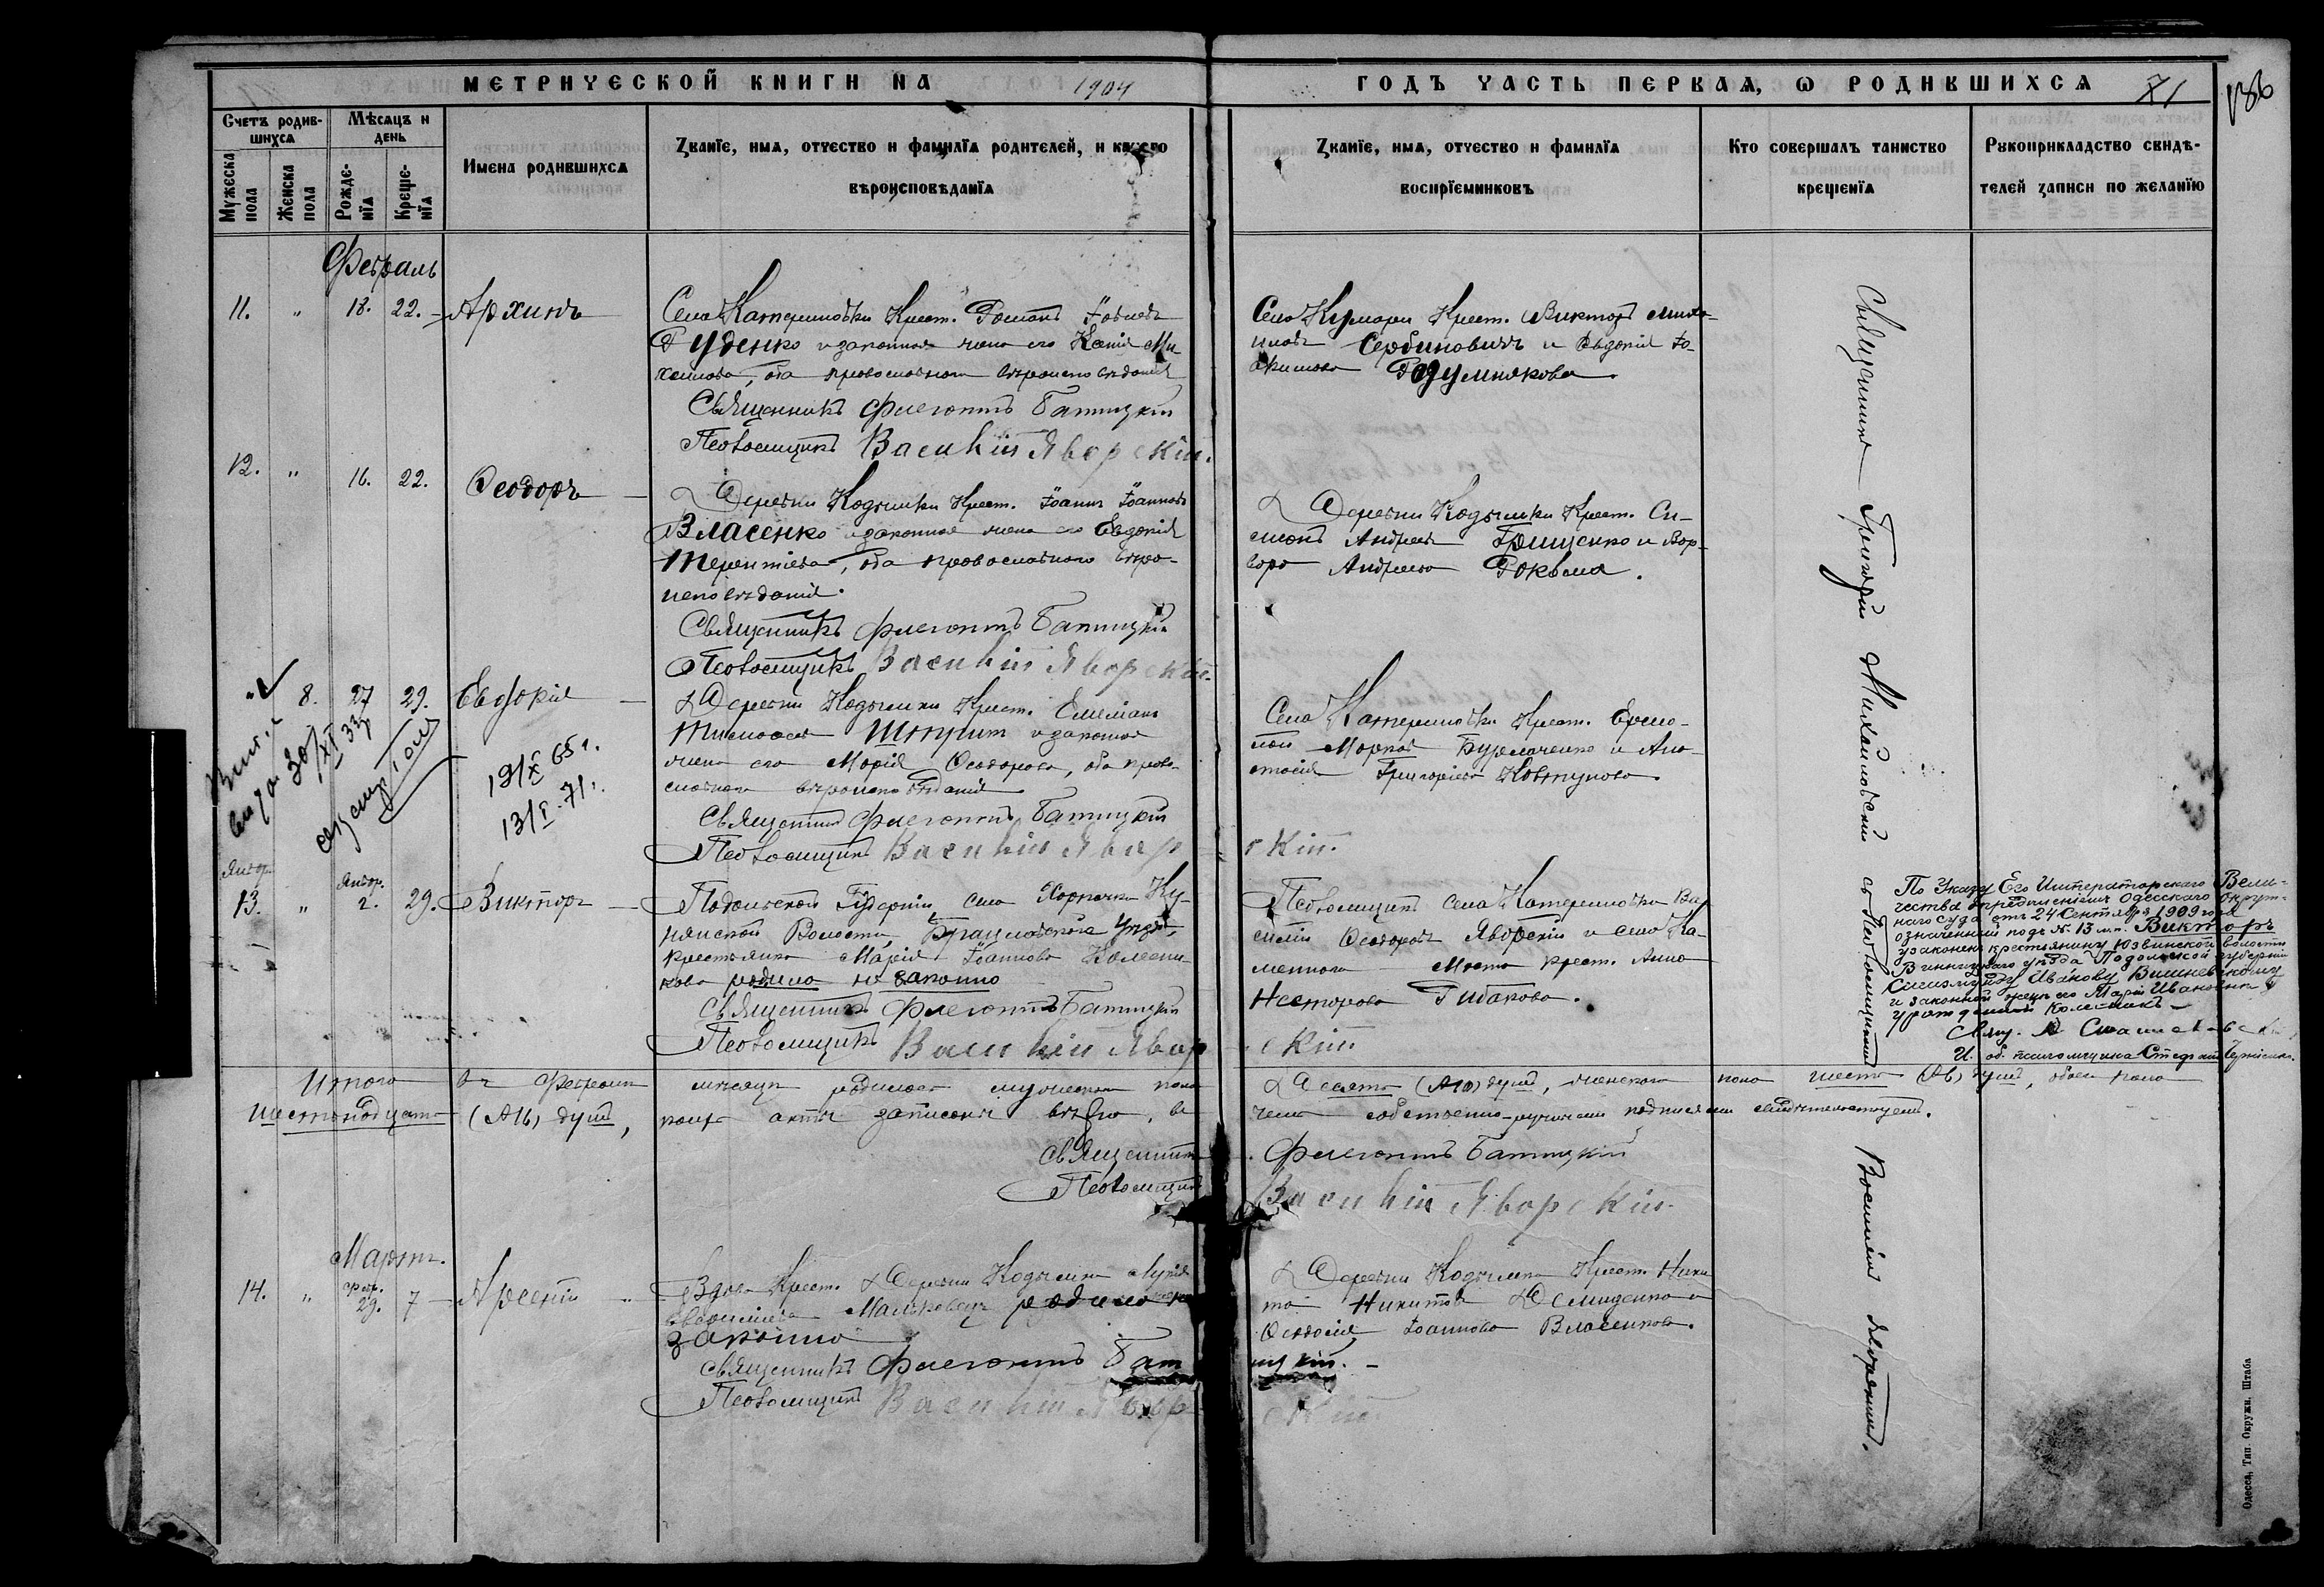 МЕТРИЧЕСКОЙ КНИГИ НА 1904 ГОДЪ ЧАСТЬ ПЕРВАЯ, Ѡ РОДИВШИХСЯ
71
186
Счетъ родив-
шихся
Мѣсяцъ и
день
Мужеска
пола
Женска
пола
Рожде-
нїя
Креще-
нїя
Имена родившихся
Званїе, имя, отчество и фамилїя родителей, и какого
вѣроисповѣданїя
Званїе, имя, отчество и фамилїя
воспрїемниковъ
Кто совершалъ таинство
крещенїя
Рукоприкладство свидѣ-
телей записи по желанїю
Февраль
11. " 18. 22. Архипъ
Села Катериновки Крест. Романъ Іовлевъ
Руденко и законная жена его Ксенія Ми
хаилова, оба православнаго вѣроисповѣданія
Священникъ Флегонтъ Батицкій
Псаломщикъ Василій Яворскій.
Села Кумари Крест. Викторъ Миха-
иловъ Сербиновичъ и Евдокія Іо-
акимова
12. " 16. 22. Ѳеодоръ
Деревни Кодымки Крест. Іоаннъ Іоанновъ
Власенко и законная жена его Евдокія
Терентіева, оба православнаго вѣро-
исповѣданія.
Священникъ Флегонтъ Батицкій
Псаломщикъ Василій Яворскій.
Деревни Кодымки Крест. Си-
меонъ Андреевъ Грищенко и Вар-
вара Андреева
" 8. 27 29. Евдокія
30/XI 33
19/X 65 г.
13/I 71 г.
Деревни Кодымки Крест. Емеліанъ
Штупит и законная
жена его Марія Ѳеодорова, оба право-
славнаго вѣроисповѣданія
Священникъ Флегонтъ Батицкій
Псаломщикъ Василій Яворскій.
Села Катериновки Крест.
Марковъ Бурлаченко и Ана-
стасія Григоріева Ковтунова
Январ.
Январ.
13. " 2. 29. Викторъ
Подольской Губерніи, села
Волости, Брацлавскаго Уѣзда,
крестьянка Марія Іоаннова Колесни-
кова родила не законно
Священникъ Флегонтъ Батицкій
Псаломщикъ Василій Яворскій.
Псаломщикъ села Катериновки Ва-
силій Ѳеодоровъ Яворскій и села Ка-
меннаго Моста крест. Анна
Несторова
По Указу Его Императорскаго Вели-
чества опредѣленіемъ Одесскаго Окруж-
наго суда отъ 24 Сентября 1909 года
означенный подъ № 13 м.п. Викторъ
узаконенъ крестьянину Юзвинской волости
Винницкаго уѣзда Подольской губерніи
Сигизмунду Иванову Вишневскому
и законной женѣ его Маріи Ивановнѣ
урожденной Колесникъ
И. об. псаломщика Стефанъ
Итого въ Февралѣ мѣсяцѣ родилось мужеска пола Десять (10) душъ, женскаго пола шесть (6) душъ, обоего пола
Шестнадцать (16) душъ, актъ записанъ вѣрно, въ чемъ собственно-ручными подписями свидѣтельствуемъ.
Священникъ Флегонтъ Батицкій
Псаломщикъ Василій Яворскій.
Мартъ.
Февр.
14. " 29. 7 Арсеній
Вдова Крест. Деревни Кодымки
родила не
законно
Священникъ Флегонтъ Батицкій.
Псаломщикъ Василій Яворскій
Деревни Кодымки Крест. Ники
та Никитовъ Демиденко и
Ѳеодосія Іоаннова Власенкова.
Священникъ Григорій Михайловскій съ Псаломщикомъ Василіемъ Яворскимъ.
Одесса, Тип. Окружн. Штаба